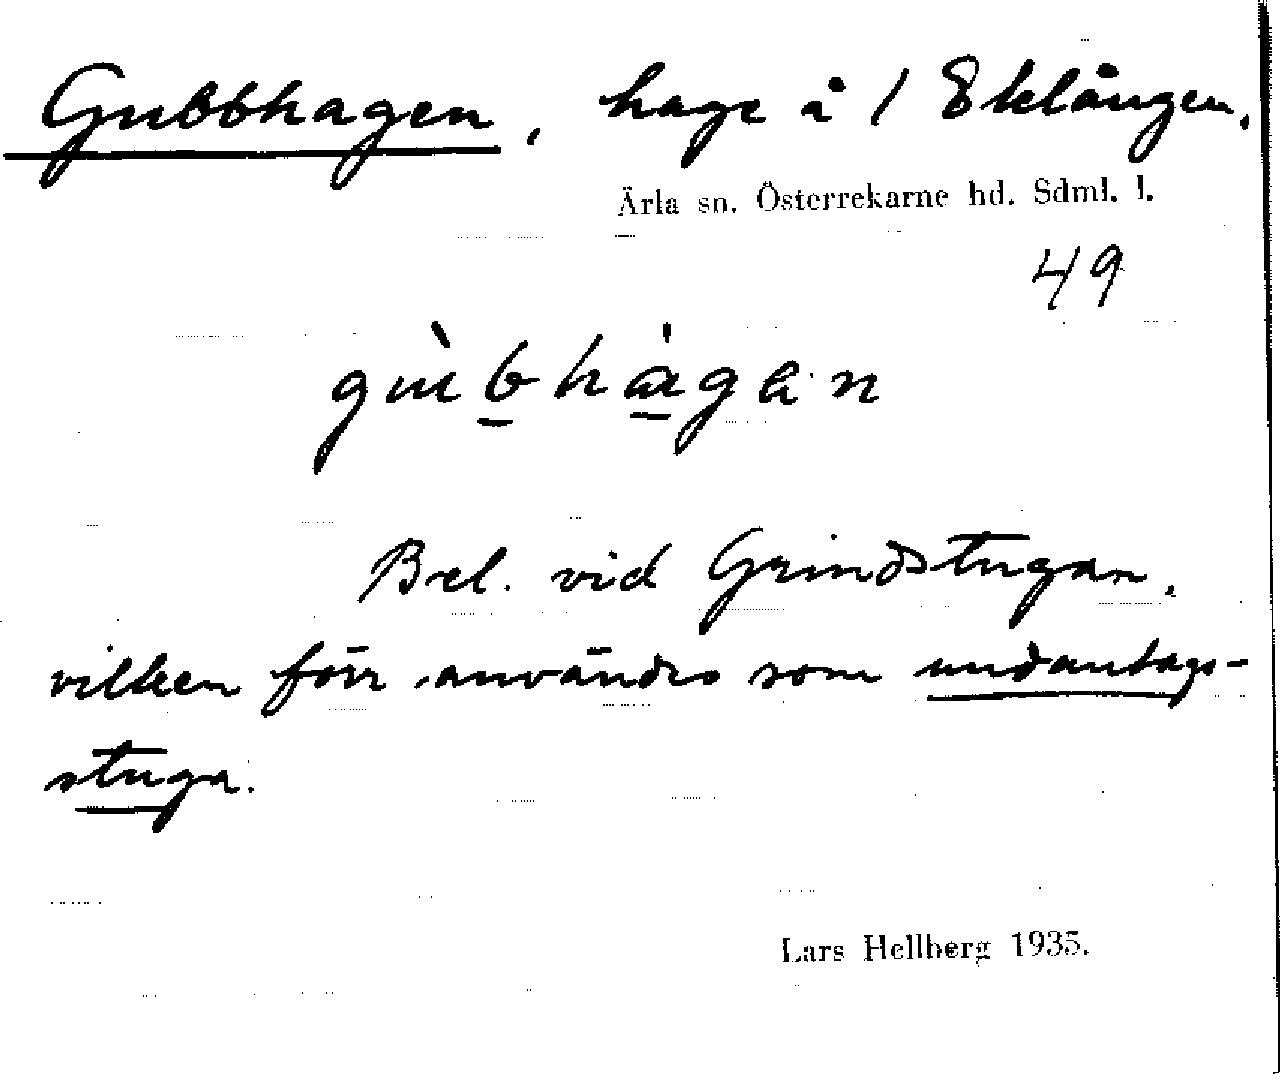 Gubbhagen, hage å 1 Eklången.
Ärla sn. Österrekarne hd. Sdml. l.
49
gùbhàgan
Bel. vid Grindstugan,
vilken förr användes som undantags-
stuga.
Lars Hellberg 1935.